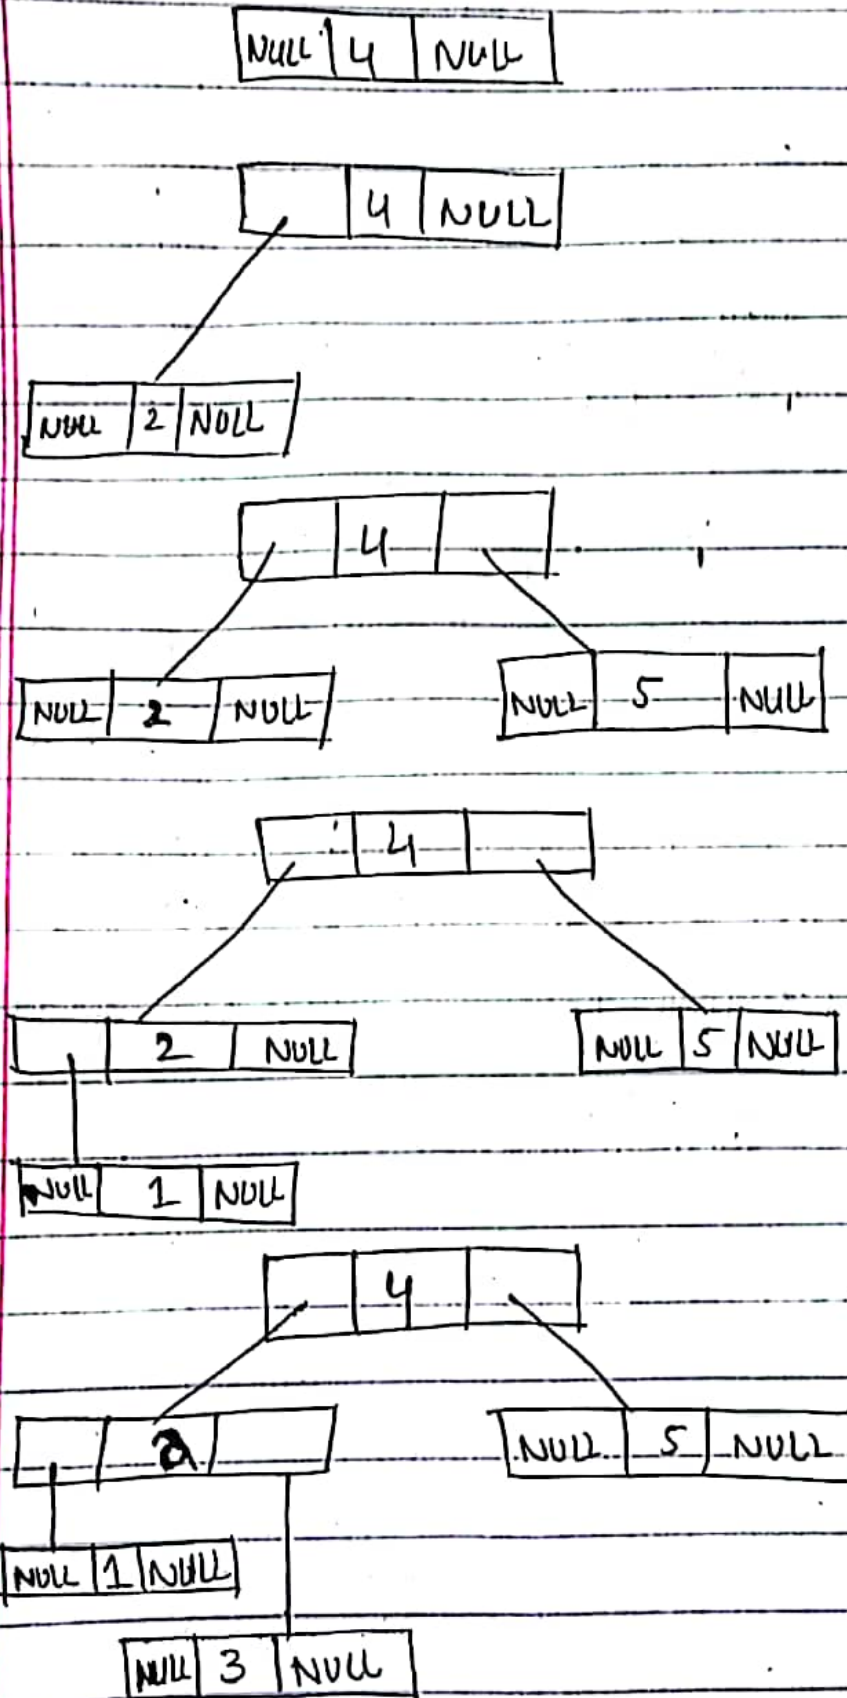 NULL 4 NULL
4 NULL
NULL 2 NULL
4
NULL 2 NULL NULL 5 NULL
4
2 NULL NULL 5 NULL
NULL 1 NULL
4
2 NULL 5 NULL
NULL 1 NULL
NULL 3 NULL